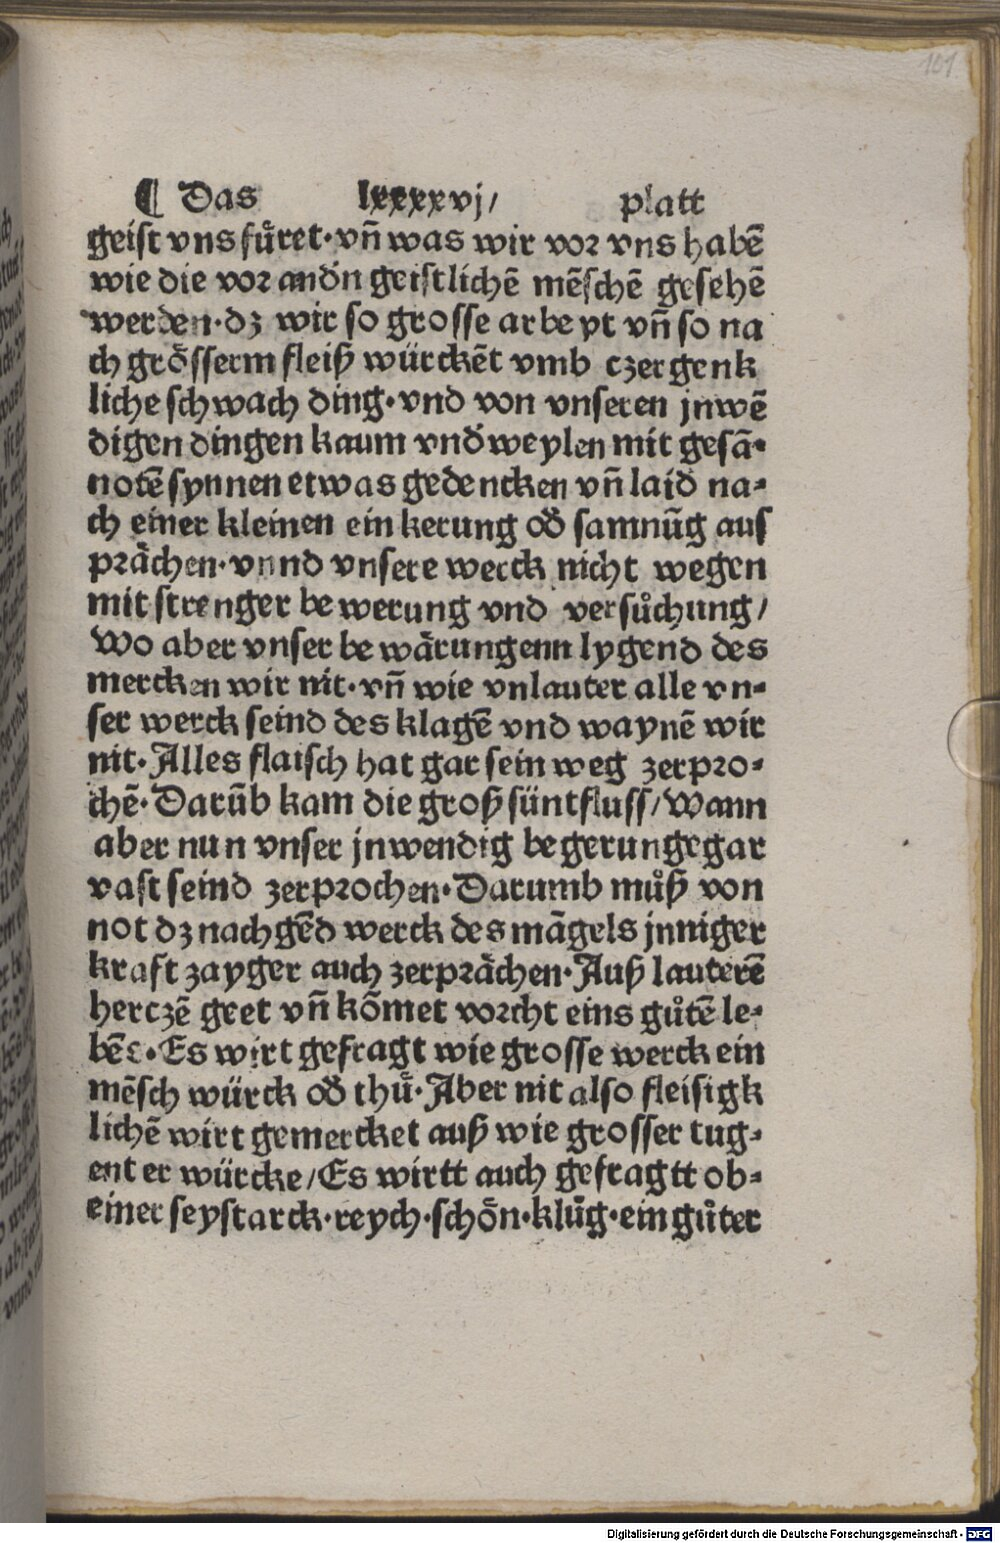 101
¶ Das lxxxxvj/ platt
geist vns fůret· vn̄ was wir vor vns habē
wie die vor andn̄ geistlichē mēschē gesehē
werden· dz wir so grosse arbeyt vn̄ so na
ch grösserm fleiß würckēt vmb czergenk
liche schwach ding· vnd von vnseren jnwē
digen dingen kaum vnd̄ weylen mit gesā⸗
notē synnen etwas gedencken vn̄ laid na⸗
ch einer kleinen einkerung od̄ samnūg aus
prächen· vnnd vnsere werck nicht wegen
mit strenger bewerung vnd versůchung/
Wo aber vnser bewärungenn lygend des
mercken wir nit· vn̄ wie vnlauter alle vn⸗
ser werck seind des klagē vnd waynē wir
nit· Alles flaisch hat gar sein weg zerpro⸗
chē· Darūb kam die groß süntfluss/ Wann
aber nun vnser jnwendig begerunge gar
vast seind zerprochen· Darumb můß von
not dz nachgēd werck des māgels jnniger
kraft zayger auch zerprächen· Auß lauterē
herczē geet vn̄ kōmet vorcht eins gůtē le⸗
bēs· Es wirt gefragt wie grosse werck ein
mēsch würck od̄ thů· Aber nit also fleisigk
lichē wirt gemercket auß wie grosser tug⸗
ent er würcke/ Es wirtt auch gefragtt ob⸗
einer sey starck· reych· schön· klůg· ein gůter
Digitalisierung gefördert durch die Deutsche Forschungsgemeinschaft - DFG